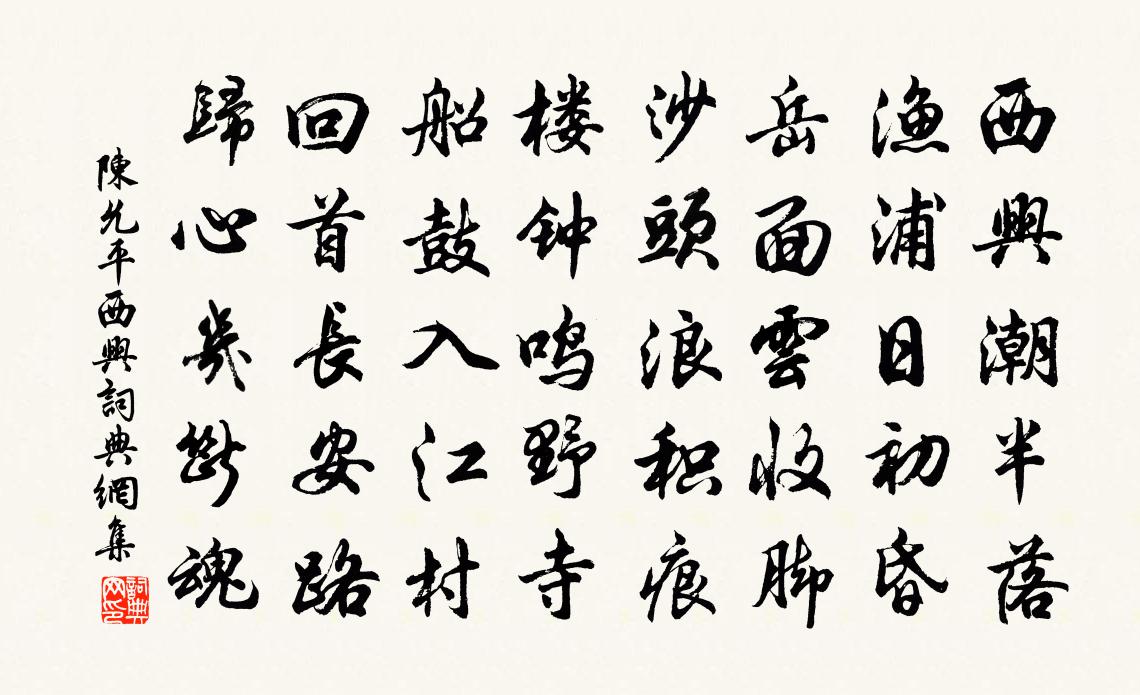 西興潮半落
漁浦日初昏
岳面雲收脚
沙頭浪积痕
楼钟鸣野寺
船鼓入江村
回首長安路
歸心幾斷魂
陳允平西興詞典網集
詞典
网印